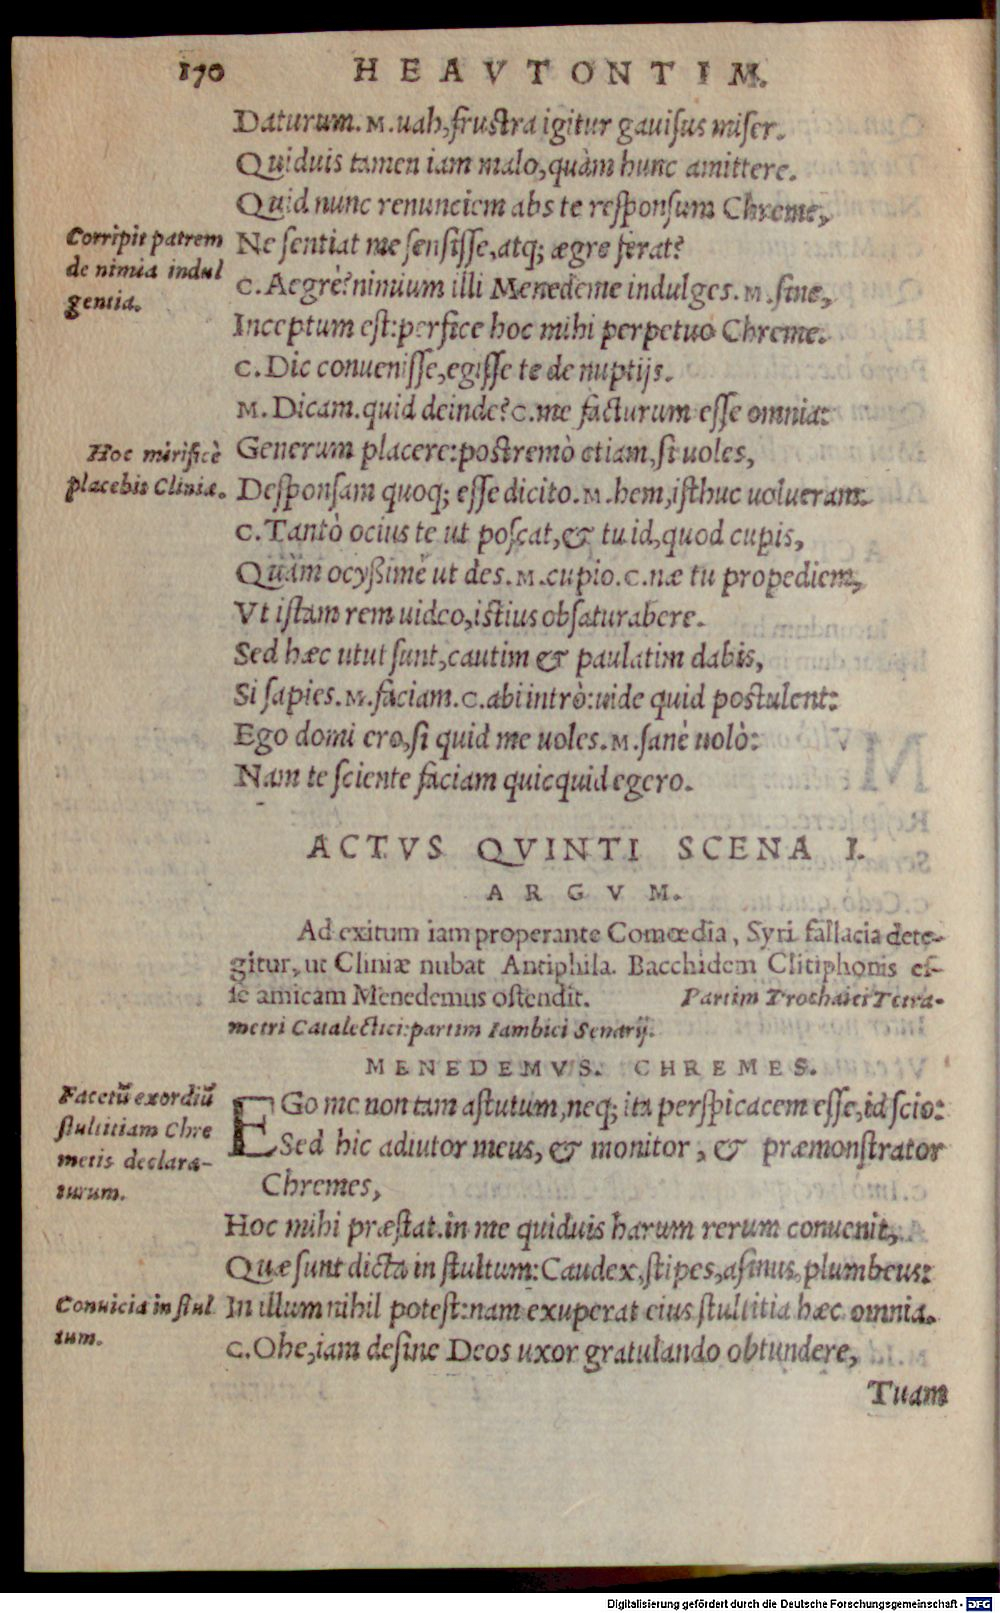 170 HEAVTONTIM.
Daturum. M. uah, frustra igitur gauisus miser.
Quiduis tamen iam malo, quàm hunc amittere.
Quid nunc renunciem abs te responsum Chreme,
Corripit patrem
de nimia indul
gentia.
Ne sentiat me sensisse, atq; ægre ferat?
C. Aegrè? nimium illi Menedeme indulges. M. sine,
Inceptum est: perfice hoc mihi perpetuo Chreme.
C. Dic conuenisse, egisse te de nuptijs.
M. Dicam. quid deinde? C. me facturum esse omnia:
Hoc mirificè
placebit Cliniæ.
Generum placere: postremò etiam, si uoles,
Desponsam quoq; esse dicito. M. hem, isthuc uolueram.
C. Tantò ocius te ut poscat, & tu id, quod cupis,
Quàm ocyßimè ut des. M. cupio. C. næ tu propediem,
Vt istam rem uideo, istius obsaturabere.
Sed hæc utut sunt, cautim & paulatim dabis,
Si sapies. M. faciam. C. abi intrò: uide quid postulent:
Ego domi ero, si quid me uoles. M. sanè uolò:
Nam te sciente faciam quicquid egero.
ACTVS QVINTI SCENA I.
ARGVM.
Ad exitum iam properante Comœdia, Syri fallacia dete-
gitur, ut Cliniæ nubat Antiphila. Bacchidem Clitiphonis es-
se amicam Menedemus ostendit. Partim Trochaici Tetra-
metri Catalectici: partim Iambici Senarij.
MENEDEMVS. CHREMES.
Facetū exordiū
stultitiam Chre
metis declara-
turum.
EGo me non tam astutum, neq; ita perspicacem esse, id scio:
Sed hic adiutor meus, & monitor, & præmonstrator
Chremes,
Hoc mihi præstat. in me quiduis harum rerum conuenit,
Quæ sunt dicta in stultum: Caudex, stipes, asinus, plumbeus:
Conuicia in stul
tum.
In illum nihil potest: nam exuperat eius stultitia hæc omnia.
C. Ohe, iam desine Deos uxor gratulando obtundere,
Tuam
Digitalisierung gefördert durch die Deutsche Forschungsgemeinschaft - DFG